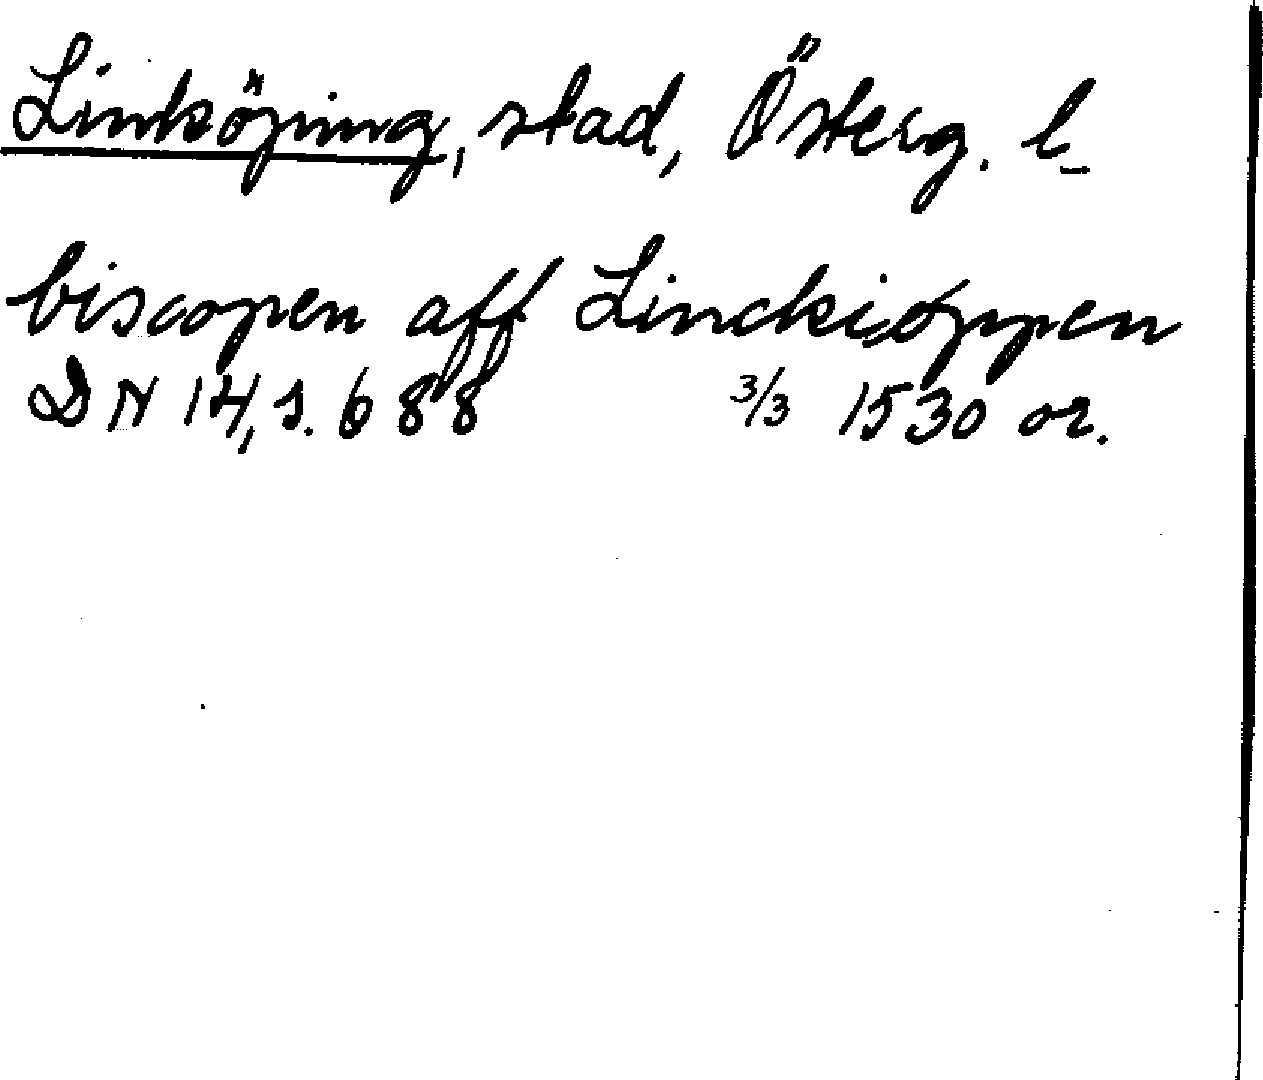 Linköping, stad, Österg. l.
biscopen aff Linckiøppen
DN 14, s. 688 3/3 1530 or.